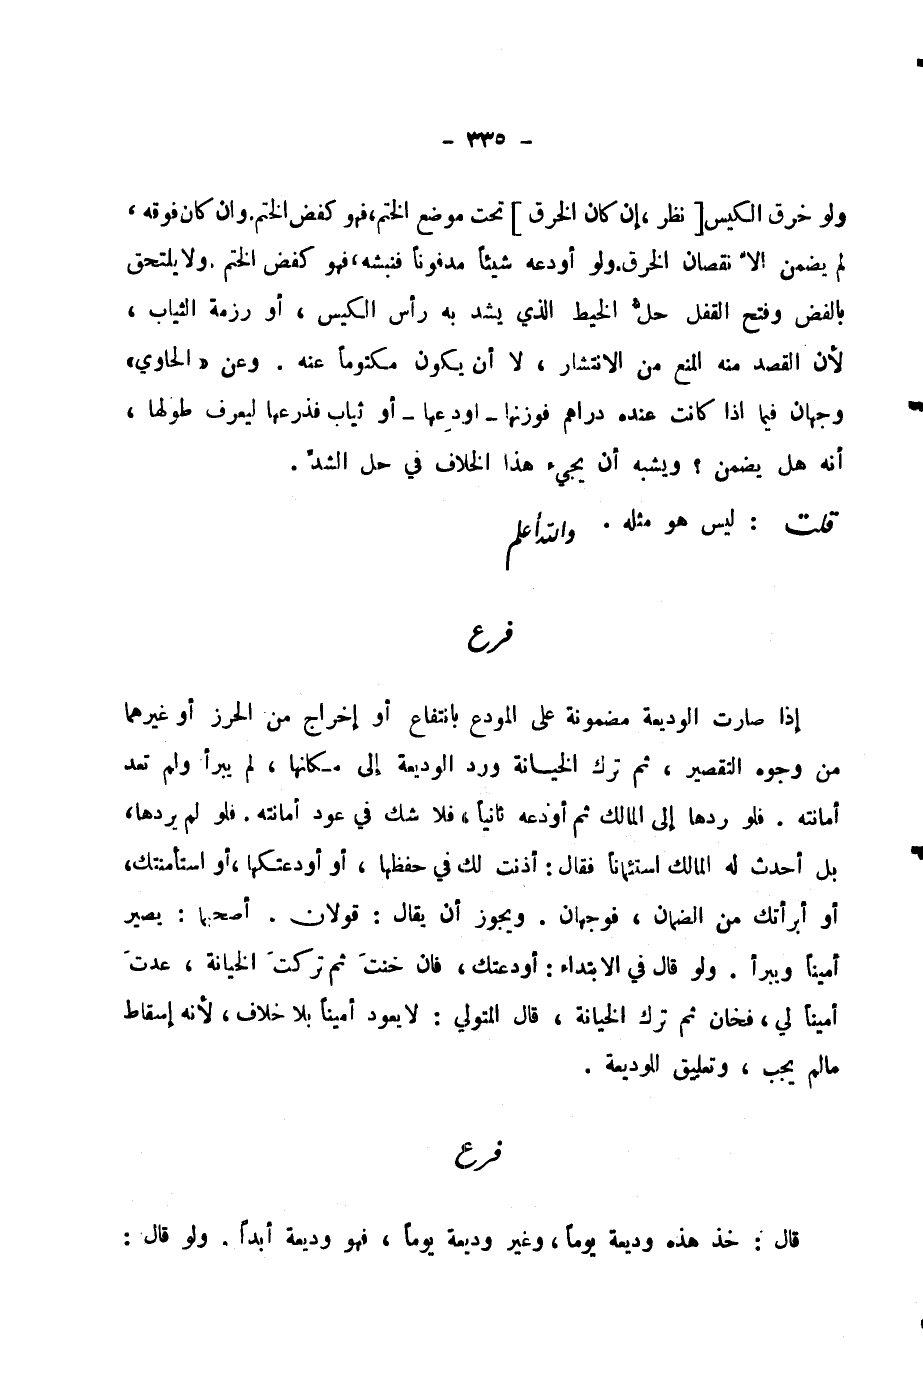 - ٣٣٥ -
ولو خرق الكيس [ نظر ، إن كان الخرق ] تحت موضع الختم ، فهو كفض الختم . وان كان فوقه ،
لم يضمن الا نقصان الخرق . ولو أودعه شيئاً مدفوناً فنبشه ، فهو كفض الختم . ولا يلتحق
بالفض وفتح القفل حلّ الخيط الذي يشد به رأس الكيس ، أو رزمة الثياب ،
لأن القصد منه المنع من الانتشار ، لا أن يكون مكتوماً عنه . وعن « الحاوي »
وجهان فيما اذا كانت عنده دراهم فوزنها ـ اودعها ـ أو ثياب فذرعها ليعرف طولها ،
أنه هل يضمن ؟ ويشبه أن يجيء هذا الخلاف في حل الشدّ .
قلت : ليس هو مثله . والله أعلم
فرع
إذا صارت الوديعة مضمونة على المودع بانتفاع أو إخراج من الحرز أو غيرهما
من وجوه التقصير ، ثم ترك الخيانة ورد الوديعة إلى مكانها ، لم يبرأ ولم تعد
أمانته . فلو ردها إلى المالك ثم أودعه ثانياً ، فلا شك في عود أمانته . فلو لم يردها ،
بل أحدث له المالك استئماناً فقال : أذنت لك في حفظها ، أو أودعتكها ، أو استأمنتك ،
أو أبرأتك من الضمان ، فوجهان . ويجوز أن يقال : قولان . أصحها : يصير
أميناً ويبرأ . ولو قال في الابتداء : أودعتك ، فان خنتَ ثم تركتَ الخيانة ، عدتَ
أميناً لي ، فخان ثم ترك الخيانة ، قال المتولي : لا يعود أميناً بلا خلاف ، لأنه إسقاط
مالم يجب ، وتعليق للوديعة .
فرع
قال : خذ هذه وديعة يوماً ، وغير وديعة يوماً ، فهو وديعة أبداً . ولو قال :